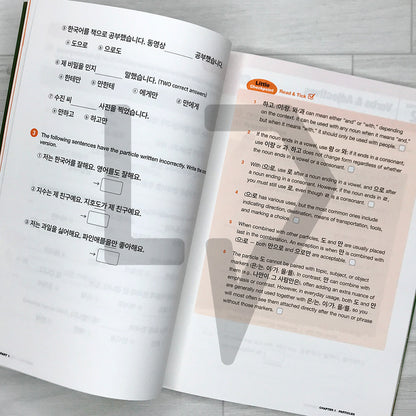 ⑤ 한국어를 책으로 공부했습니다. 동영상 공부했습니다.
ⓐ 도으로 ⓑ 으로도
⑥ 제 비밀을 민지 말했습니다. (TWO correct answers)
ⓐ 한테만 ⓑ 만한테 ⓒ 에게만 ⓓ 만에게
⑦ 수진 씨 사진을 찍었습니다.
ⓐ 만하고 ⓑ 하고만
The following sentences have the particle written incorrectly. Write the
① 저는 한국어를 잘해요. 영어를도 잘해요.
→
② 지수는 제 친구예요. 지호도가 제 친구예요.
→
③ 저는 과일을 싫어해요. 파인애플을만 좋아해요.
→
Little
Read & Tick
1 하고, (이)랑, 와/과 can mean either "and" or "with," depending
on the context. It can be used with any noun when it means "and",
but when it means "with," it should only be used with people.
2 If the noun ends in a vowel, use 랑 or 와; if it ends in a consonant,
use 이랑 or 과. 하고 does not change form regardless of whether
the noun ends in a vowel or a consonant.
3 With (으)로, use 로 after a noun ending in a vowel, and 으로 after
a noun ending in a consonant. However, if the noun ends in ㄹ,
you must still use 로, even though ㄹ is a consonant.
4 (으)로 has various uses, but the most common ones include
indicating direction, destination, means of transportation, tools,
and marking a choice.
5 When combined with other particles, 도 and 만 are usually placed
last in the combination. An exception is when 만 is combined with
(으)로 — both 만으로 and 으로만 are acceptable.
6 The particle 도 cannot be paired with topic, subject, or object
markers (은/는, 이/가, 을/를). In contrast, 만 can be combined with
them (e.g. 나만이 그 사람만은), often adding an extra nuance of
emphasis or contrast. However, in everyday usage, both 도 and 만
will most often see them attached directly after the noun or phrase
without those markers.
CHAPTER 1 PARTICLES